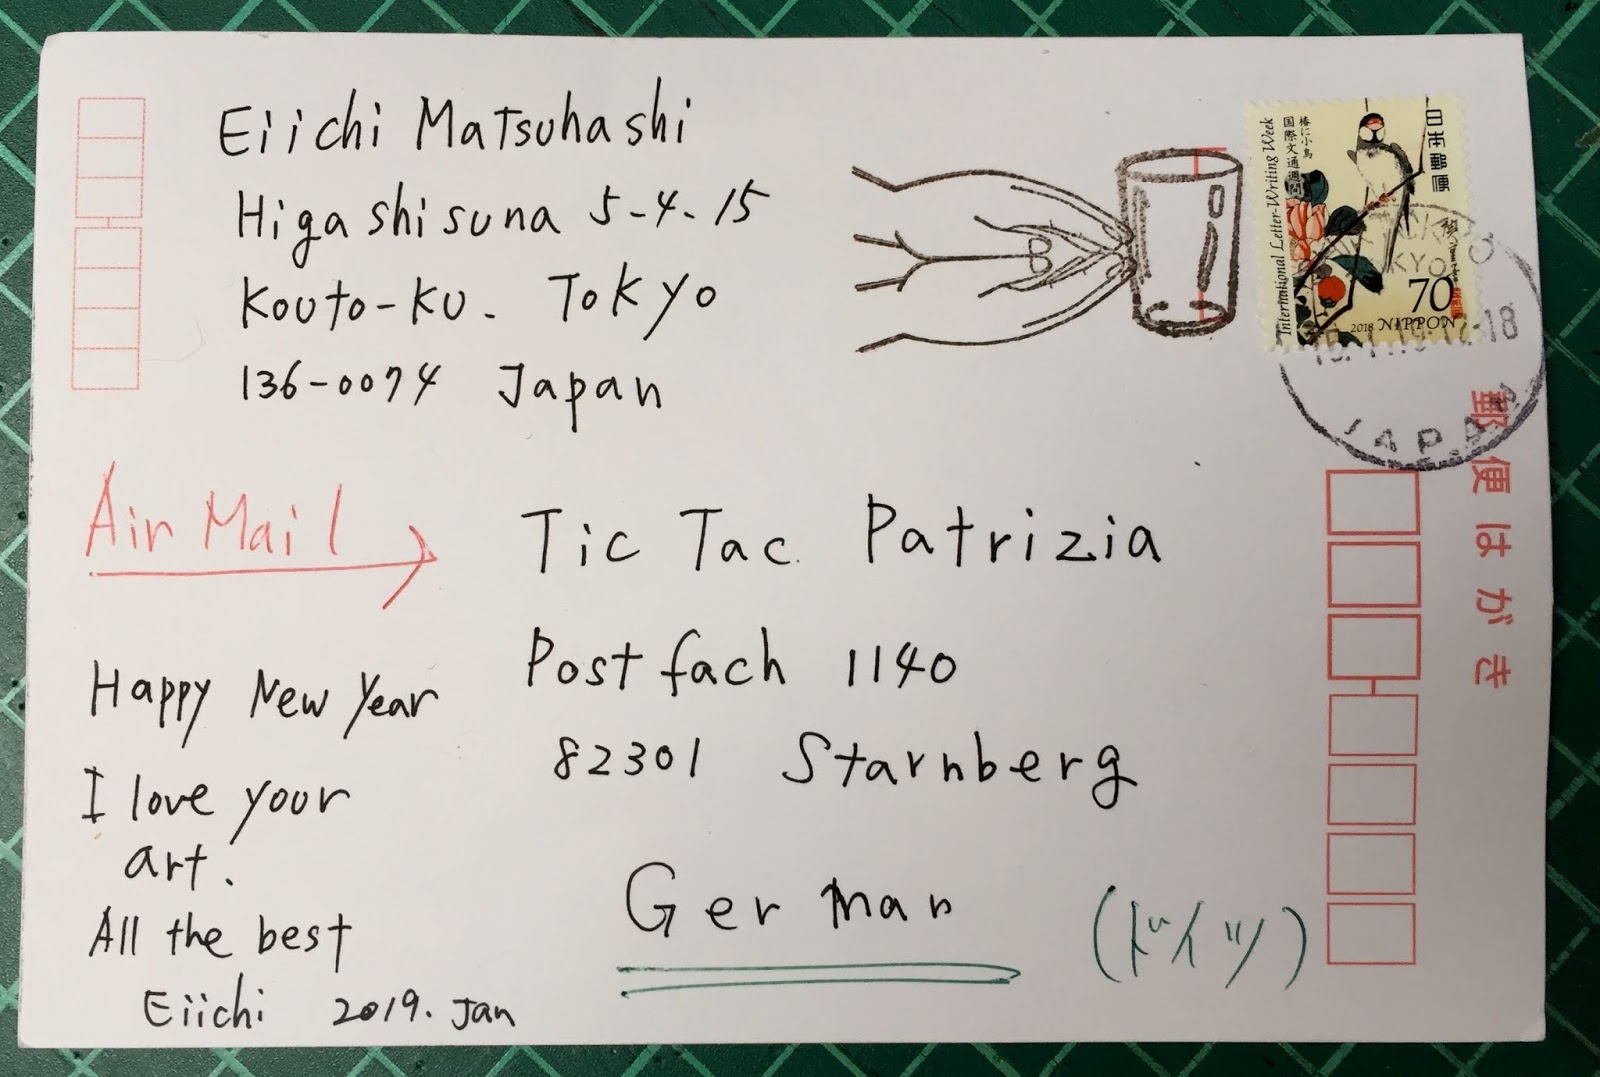 Eiichi Matsuhashi
Higashisuna 5-4-15
Kouto-Ku. Tokyo
136-0074 Japan
Air Mail
Happy New Year
I love your
art.
All the best
Eiichi 2019. Jan
Tic Tac Patrizia
Postfach 1140
82301 Starnberg
German
(ドイツ)
日本郵便
椿に小鳥
国際文通週間
International Letter-Writing Week
70
2018 NIPPON
JAPAN
郵便はがき